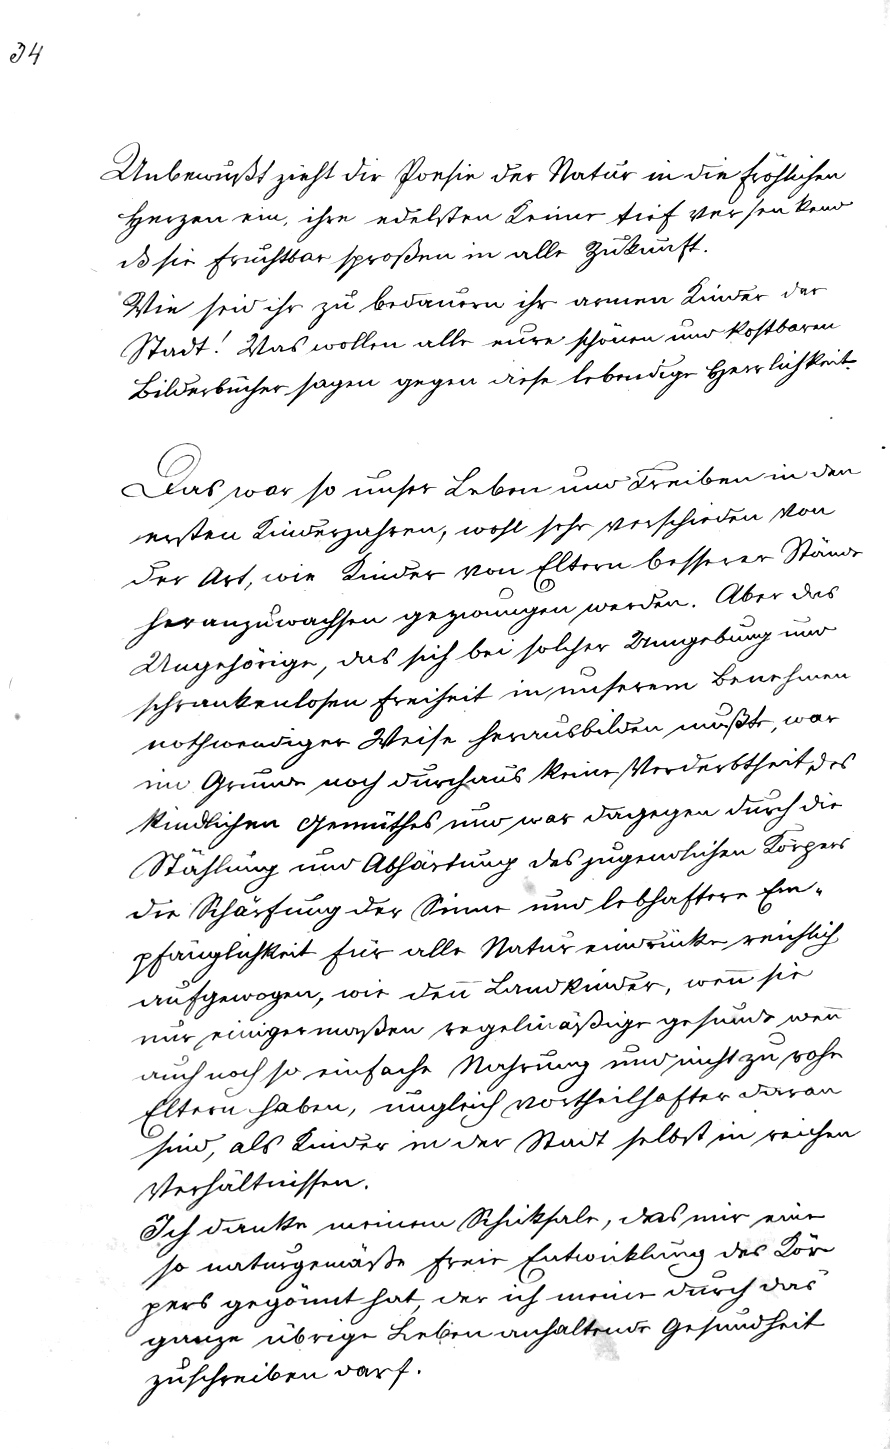 34
Unbewußt zieht die Poesie der Natur in die fröhlichen
Herzen ein, ihre edelsten Keime tief versenkend
daß sie fruchtbar sproßen in alle Zukunft.
Wie seid ihr zu bedauern ihr armen Kinder der
Stadt! Was wollen alle eure schönen und kostbaren
Bilderbücher sagen gegen diese lebendige Herrlichkeit.
Das war so unser Leben und Treiben in den
ersten Kinderjahren, wohl sehr verschieden von
der Art, wie Kinder von Eltern besserer Stände
heranzuwachsen gezwungen werden. Aber das
Ungehörige, das sich bei solcher Umgebung und
schrankenlosen Freiheit in unserem Benehmen
nothwendiger Weise herausbilden mußte, war
im Grunde noch durchaus keine Verderbtheit des
kindlichen Gemüthes und war dagegen durch die
Stählung und Abhärtung des jugendlichen Körpers
die Schärfung der Sinne und lebhaftere Em-
pfänglichkeit für alle Natureindrücke reichlich
aufgewogen, wie den̄ Landkinder, wen̄ sie
nur einigermaßen regelmäßige gesunde wen̄
auch noch so einfache Nahrung und nicht zu rohe
Eltern haben, ungleich vortheilhafter daran
sind, als Kinder in der Stadt selbst in reichen
Verhältnissen.
Ich danke meinem Schiksale, das mir eine
so naturgemäße freie Entwicklung des Kör
pers gegönnt hat, der ich meine durch das
ganze übrige Leben anhaltende Gesundheit
zuschreiben darf.